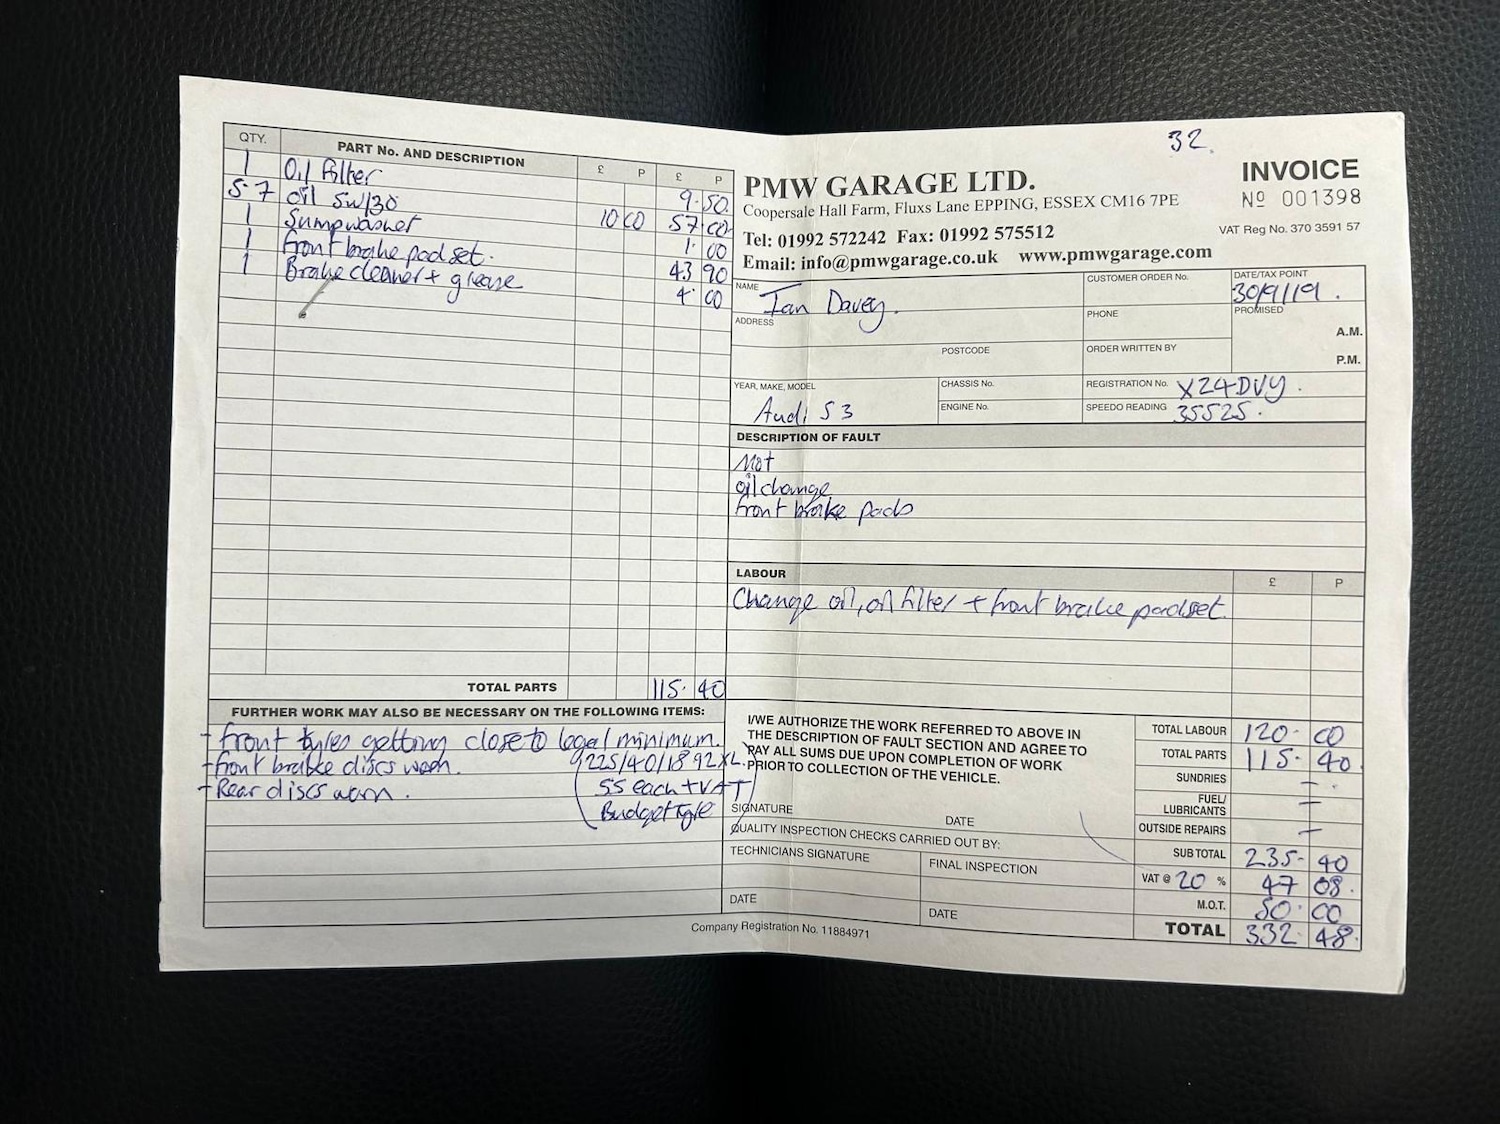 QTY. PART No. AND DESCRIPTION £ P £ P
1 Oil Filter 9.50
5.7 oil 5W/30 10 00 57.00
1 Sumpwasher 1.00
1 front brake pad set. 43 90
1 Brake cleaner + grease 4.00
TOTAL PARTS 115.40
FURTHER WORK MAY ALSO BE NECESSARY ON THE FOLLOWING ITEMS:
- front tyres getting close to legal minimum.
- front brake discs worn. (225/40/18 92XL.)
- Rear discs worn. 55 each + VAT
Budget tyre
32.
INVOICE
No 001398
VAT Reg No. 370 3591 57
PMW GARAGE LTD.
Coopersale Hall Farm, Fluxs Lane EPPING, ESSEX CM16 7PE
Tel: 01992 572242 Fax: 01992 575512
Email: info@pmwgarage.co.uk www.pmwgarage.com
NAME Ian Davey. CUSTOMER ORDER No. DATE/TAX POINT 30/9/19.
ADDRESS PHONE PROMISED A.M.
POSTCODE ORDER WRITTEN BY P.M.
YEAR, MAKE, MODEL Audi S3 CHASSIS No. REGISTRATION No. X24DVY.
ENGINE No. SPEEDO READING 35525.
DESCRIPTION OF FAULT
Mot
oil change
front brake pads
LABOUR £ P
Change oil, oil filter + front brake padset.
I/WE AUTHORIZE THE WORK REFERRED TO ABOVE IN
THE DESCRIPTION OF FAULT SECTION AND AGREE TO
PAY ALL SUMS DUE UPON COMPLETION OF WORK
PRIOR TO COLLECTION OF THE VEHICLE.
SIGNATURE DATE
QUALITY INSPECTION CHECKS CARRIED OUT BY:
TECHNICIANS SIGNATURE FINAL INSPECTION
DATE DATE
TOTAL LABOUR 120.00
TOTAL PARTS 115.40
SUNDRIES -.
FUEL/
LUBRICANTS -
OUTSIDE REPAIRS -
SUB TOTAL 235.40
VAT @ 20 % 47 08.
M.O.T. 50.00
TOTAL 332.48.
Company Registration No. 11884971